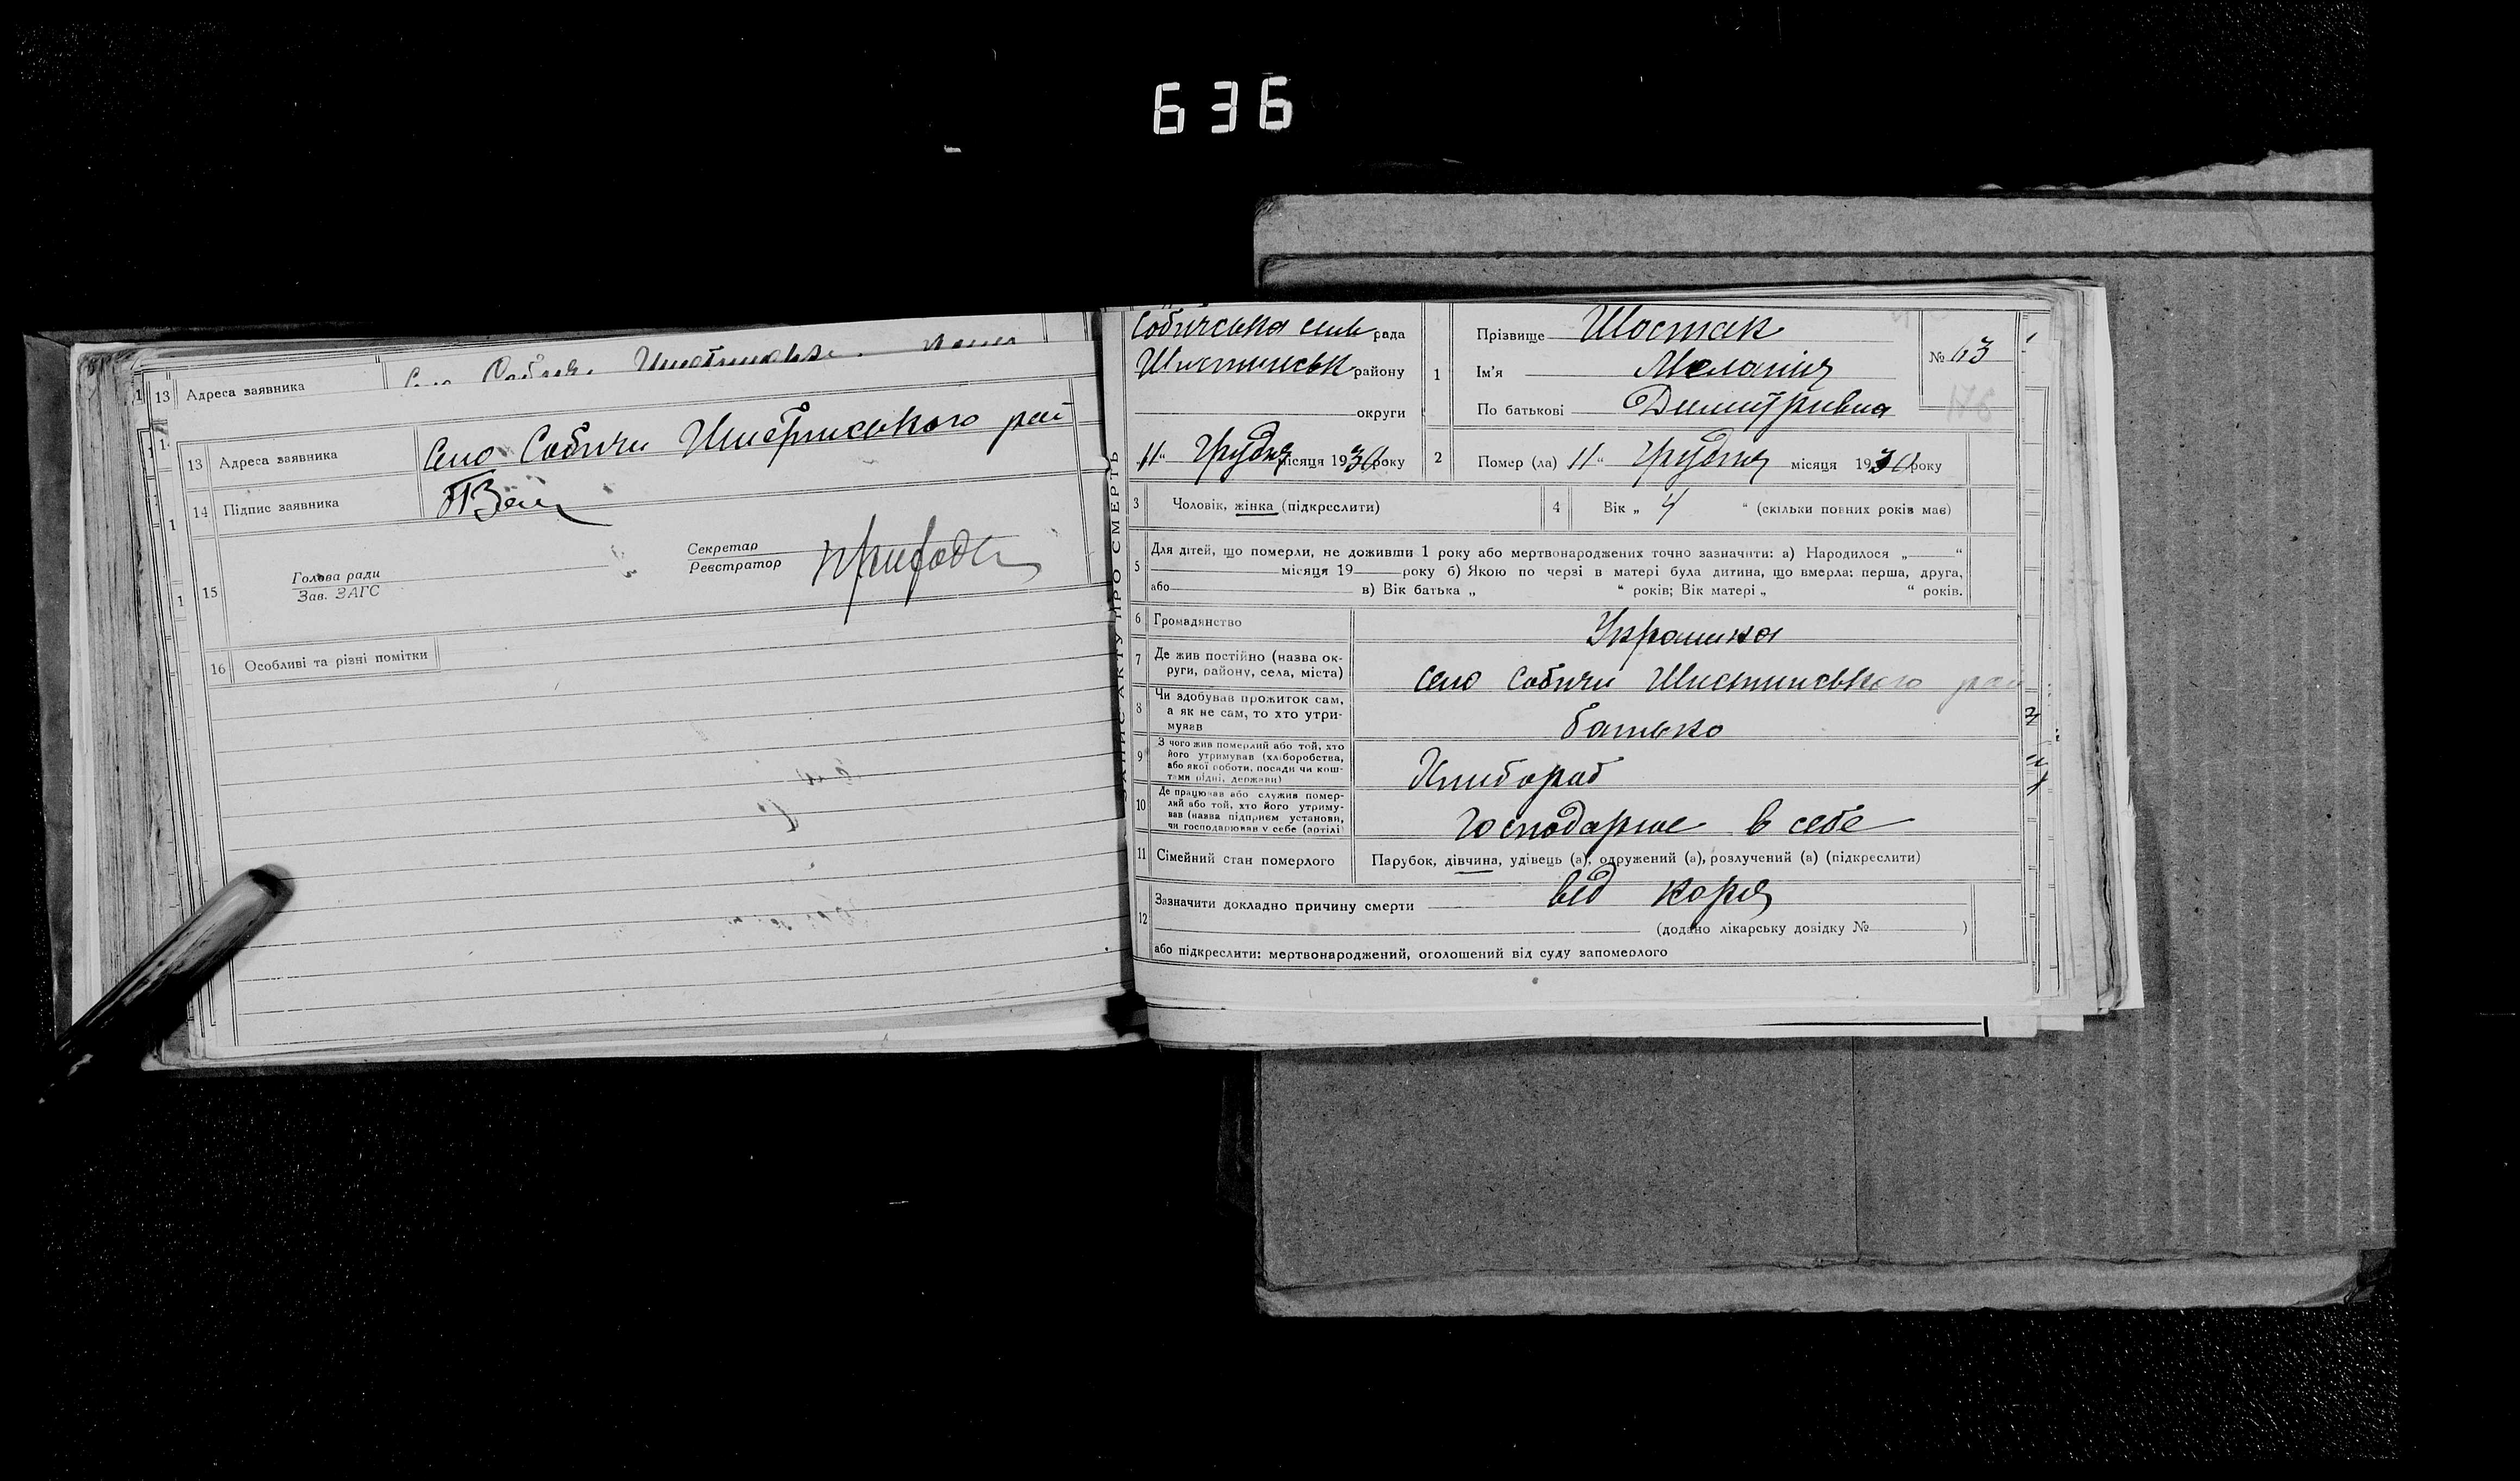 636
13 Адреса заявника
13 Адреса заявника Село Собичи Шистинського рай
14 Підпис заявника
15 Голова ради
Зав. ЗАГС
Секретар
Реєстратор
16 Особливі та різні помітки
ЗАПИС АКТУ ПРО СМЕРТЬ
Собичська сіль рада
Шистинськ району
округи
11" Грудня місяця 1930 року
1 Прізвище Шостак
Ім'я Меланія
По батькові Димитривна
№ 63
176
2 Помер (ла) 11" Грудня місяця 1930 року
3 Чоловік, жінка (підкреслити)
4 Вік „ 4 " (скільки повних років має)
5 Для дітей, що померли, не доживши 1 року або мертвонароджених точно зазначити: а) Народилося „ "
місяця 19 року б) Якою по черзі в матері була дитина, що вмерла: перша, друга,
або в) Вік батька „ " років; Вік матері „ " років.
6 Громадянство Украинка
7 Де жив постійно (назва ок-
руги, району, села, міста) село Собичи Шистинського рай
8 Чи здобував прожиток сам,
а як не сам, то хто утри-
мував батько
9 З чого жив померлий або той, хто
його утримував (хліборобства,
або якої роботи, посади чи кош-
тами рідні, держави) Хлибораб
10 Де працював або служив помер-
лий або той, хто його утриму-
вав (назва підприєм установи,
чи господарював у себе (артілі) Господарює в себе
11 Сімейний стан померлого Парубок, дівчина, удівець (а), одружений (а), розлучений (а) (підкреслити)
12 Зазначити докладно причину смерти від корія
(додано лікарську довідку № )
або підкреслити: мертвонароджений, оголошений від суду запомерлого